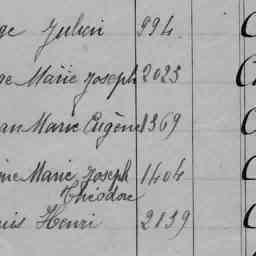 ge Julien 994.
pe Marie Joseph 2023
an Marie Eugène 1369
ine Marie Joseph 1404
Théodore
uis Henri 2139